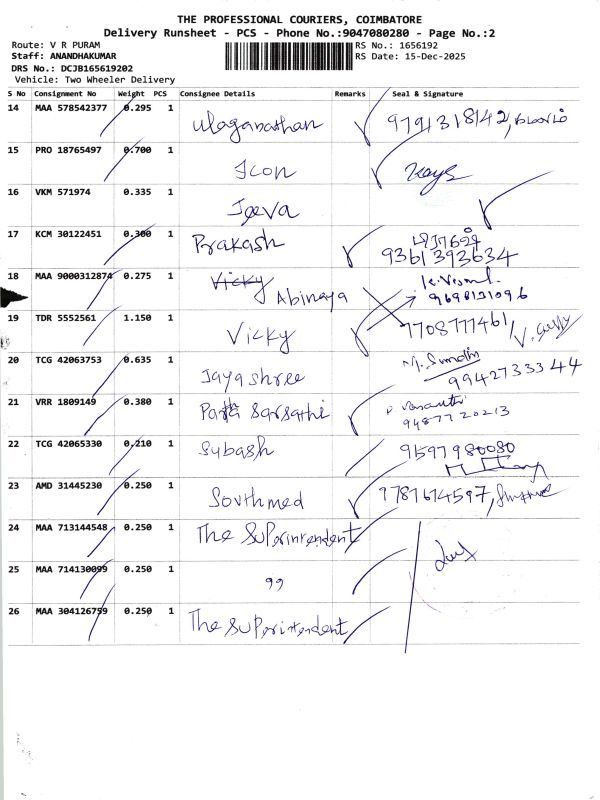 THE PROFESSIONAL COURIERS, COIMBATORE
Delivery Runsheet - PCS - Phone No.:9047080280 - Page No.:2
Route: V R PURAM
Staff: ANANDHAKUMAR
DRS No.: DCJB165619202
Vehicle: Two Wheeler Delivery
RS No.: 1656192
RS Date: 15-Dec-2025
S No Consignment No Weight PCS Consignee Details Remarks Seal & Signature
14 MAA 578542377 0.295 1 Ulaganathan 9791318142,
15 PRO 18765497 0.700 1 Icon
16 VKM 571974 0.335 1 Jeeva
17 KCM 30122451 0.300 1 Prakash 9361393634
18 MAA 9000312874 0.275 1 Vicky Abinaya 9698131096
19 TDR 5552561 1.150 1 Vicky 7708777461
20 TCG 42063753 0.635 1 Jayashree 9942733344
21 VRR 1809149 0.380 1 Partha Sarsathi 9487720213
22 TCG 42065330 0.210 1 Subash 9597980080
23 AMD 31445230 0.250 1 Southmed 9787674597,
24 MAA 713144548 0.250 1 The Superinrendent
25 MAA 714130099 0.250 1 ,,
26 MAA 304126759 0.250 1 The Superintendent